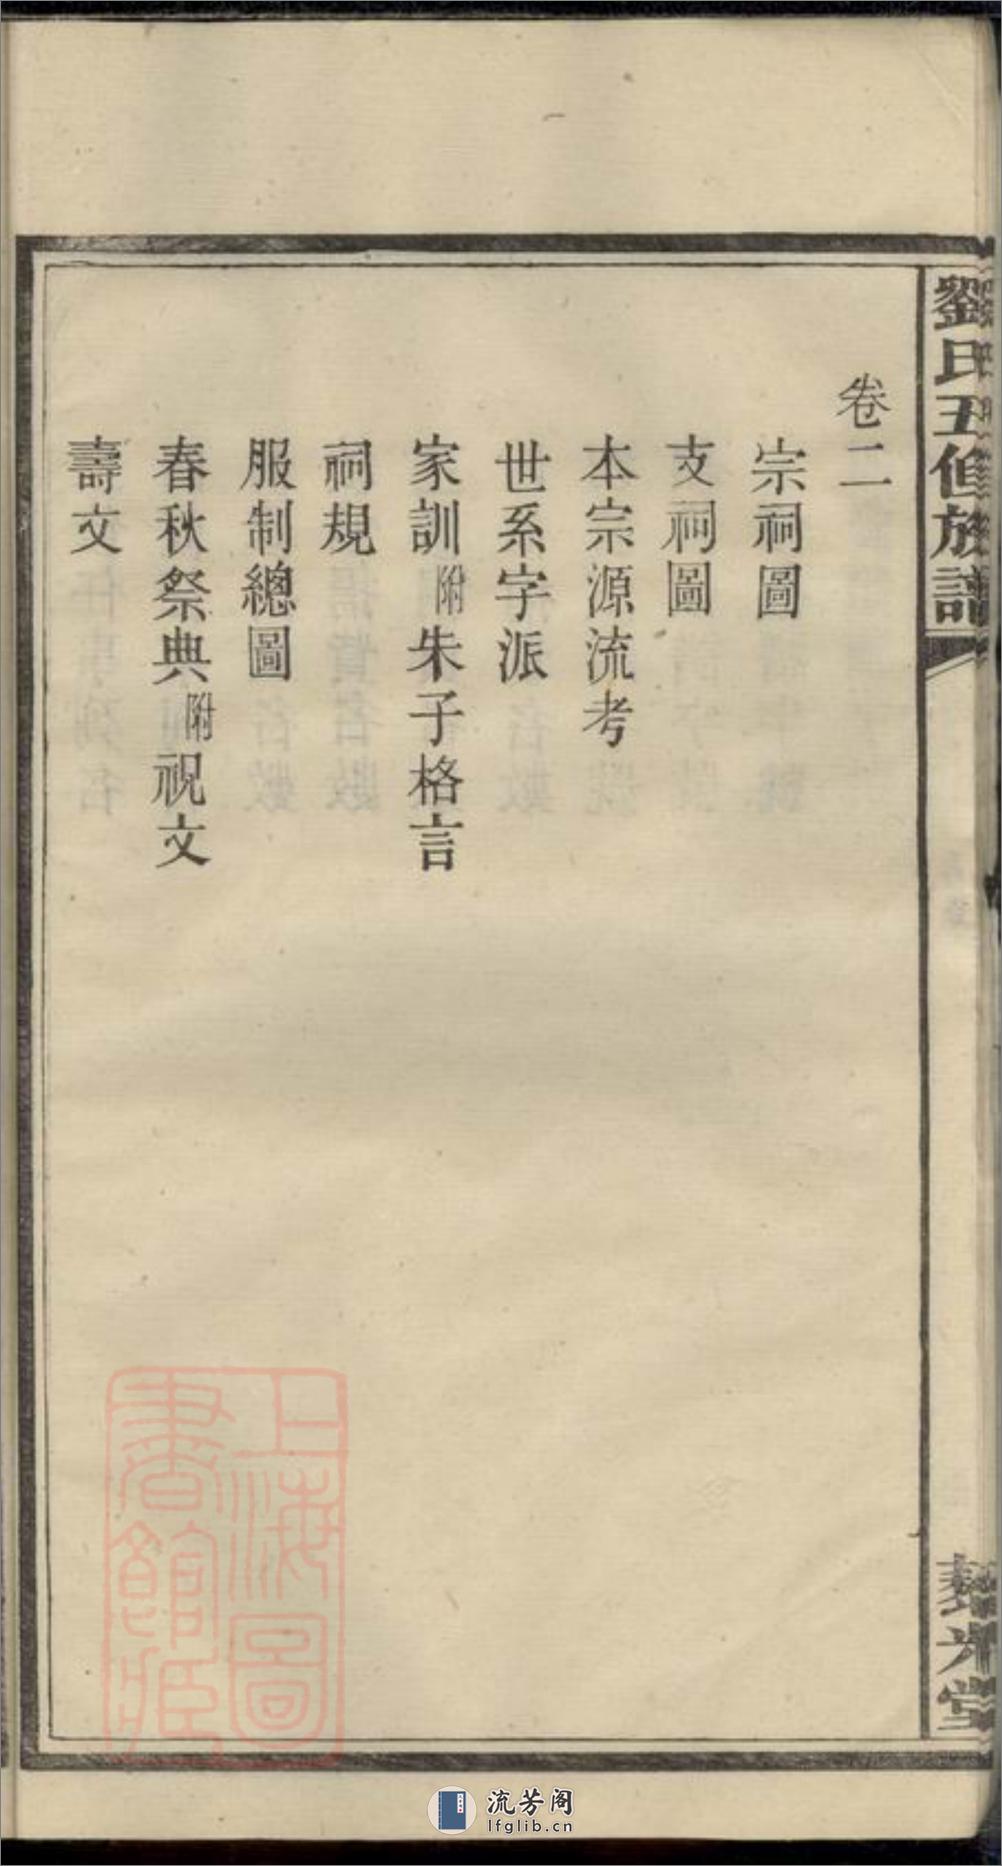 劉氏五修族譜
卷二
宗祠圖
支祠圖
本宗源流考
世系字派
家訓附朱子格言
祠規
服制總圖
春秋祭典附祝文
壽文
上海圖
書館臧
流芳阁
lfglib.cn